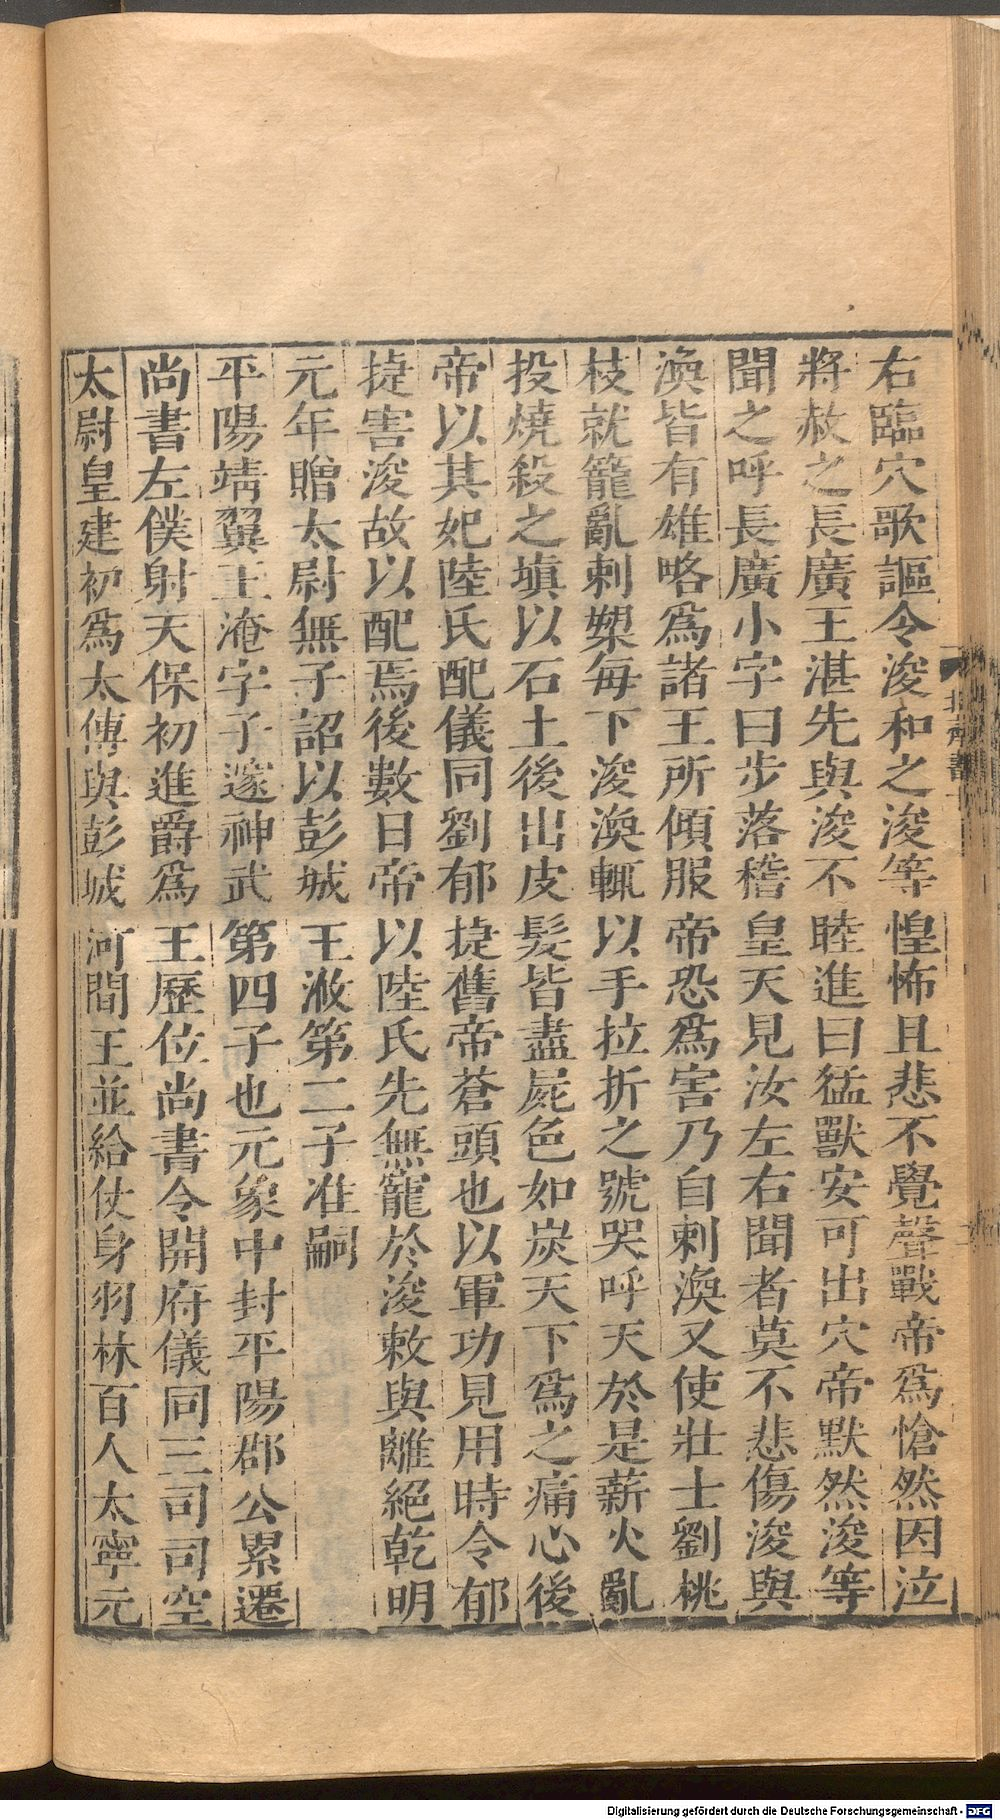 右臨穴歌謳令浚和之浚等惶怖且悲不覺聲戰帝爲愴然因泣
將赦之長廣王湛先與浚不睦進曰猛獸安可出穴帝默然浚等
聞之呼長廣小字曰步落稽皇天見汝左右聞者莫不悲傷浚與
渙皆有雄略爲諸王所傾服帝恐爲害乃自刺渙又使壯士劉桃
枝就籠亂刺槊每下浚渙輒以手拉折之號哭呼天於是薪火亂
投燒殺之填以石土後出皮髮皆盡屍色如炭天下爲之痛心後
帝以其妃陸氏配儀同劉郁捷舊帝蒼頭也以軍功見用時令郁
捷害浚故以配焉後數日帝以陸氏先無寵於浚敕與離絕乾明
元年贈太尉無子詔以彭城王浟第二子准嗣
平陽靖翼王淹字子邃神武第四子也元象中封平陽郡公累遷
尚書左僕射天保初進爵爲王歷位尚書令開府儀同三司司空
太尉皇建初爲太傅與彭城河間王並給仗身羽林百人太寧元
北齊書
Digitalisierung gefördert durch die Deutsche Forschungsgemeinschaft - DFG